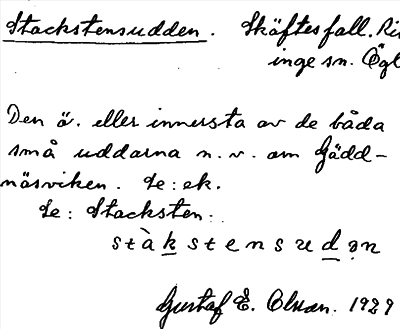 Stackstensudden. Skäftesfall. Ri
inge sn. Ögl
Den ö. eller innersta av de båda
små uddarna n.v. om Gädd-
näsviken. Se: ek.
Se: Stacksten.
stàkstensudən
Gustaf E. Olsson. 1929